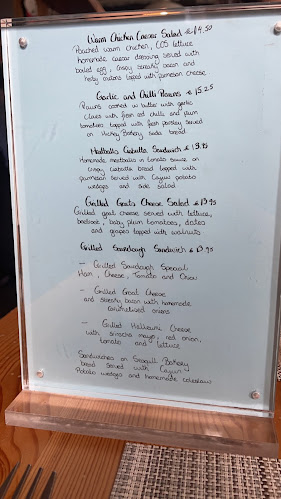 Warm Chicken Caesar Salad £14.50
Poached warm chicken, COS lettuce
homemade caesar dressing served with
boiled egg, crispy streaky bacon and
crusty croutons topped with parmesan cheese
Garlic and Chilli Prawns £15.25
Prawns cooked in butter with garlic
cloves with fresh red chilli and plum
tomatoes topped with fresh parsley served
on Bakery soda bread
Meatballs Ciabatta Sandwich £13.95
Homemade meatballs in tomato sauce on
crispy ciabatta bread topped with
parmesan served with Cajun potato
wedges and side salad
Grilled Goats Cheese Salad £13.95
Grilled goat cheese served with lettuce,
beetroot, baby plum tomatoes, dates
and grapes topped with walnuts
Grilled Sourdough Sandwich £13.95
- Grilled Sourdough Special
Ham, Cheese, Tomato and Onion
- Grilled Goat Cheese
and streaky bacon with homemade
caramelised onions
- Grilled Halloumi Cheese
with sriracha mayo, red onion,
tomato and lettuce
Sandwiches on Seagull Bakery
bread served with Cajun
Potato wedges and homemade coleslaw